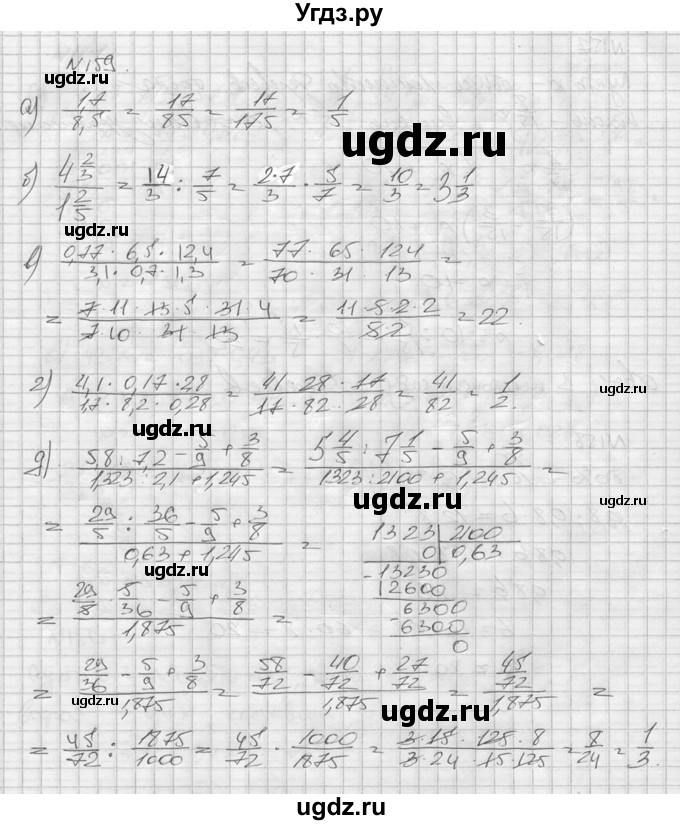 Угдз.ру
N159.
ugdz.ru
а) 17/8,5 = 17/85 = 17/175 = 1/5
ugdz.ru
б) 4 2/3 / 1 2/5 = 14/3 : 7/5 = 2·7/3 · 5/7 = 10/3 = 3 1/3
ugdz.ru
в) 0,77 · 6,5 · 12,4 / 3,1 · 0,7 · 1,3 = 77 · 65 · 124 / 70 · 31 · 13 =
= 7 · 11 · 13 · 5 · 31 · 4 / 7 · 10 · 31 · 13 = 11 · 5 · 2 · 2 / 5 · 2 = 22.
ugdz.ru
ugdz.ru
г) 4,1 · 0,17 · 28 / 1,7 · 8,2 · 0,28 = 41 · 28 · 17 / 17 · 82 · 28 = 41/82 = 1/2.
ugdz.ru
ugdz.ru
д) 5,8 : 7,2 - 5/9 + 3/8 / 1,323 : 2,1 + 1,245 = 5 4/5 : 7 1/5 - 5/9 + 3/8 / 1323 : 2100 + 1,245 =
ugdz.ru
= 29/5 : 36/5 - 5/9 + 3/8 / 0,63 + 1,245 =
1323 | 2100
0 | 0,63
-13230
12600
-6300
6300
0
ugdz.ru
ugdz.ru
= 29/5 · 5/36 - 5/9 + 3/8 / 1,875 =
= 29/36 - 5/9 + 3/8 / 1,875 = 58/72 - 40/72 + 27/72 / 1,875 = 45/72 / 1,875 =
ugdz.ru
ugdz.ru
ugdz.ru
= 45/72 : 1875/1000 = 45/72 · 1000/1875 = 3·15 · 125 · 8 / 3·24 · 15·125 = 8/24 = 1/3.
ugdz.ru
ugdz.ru